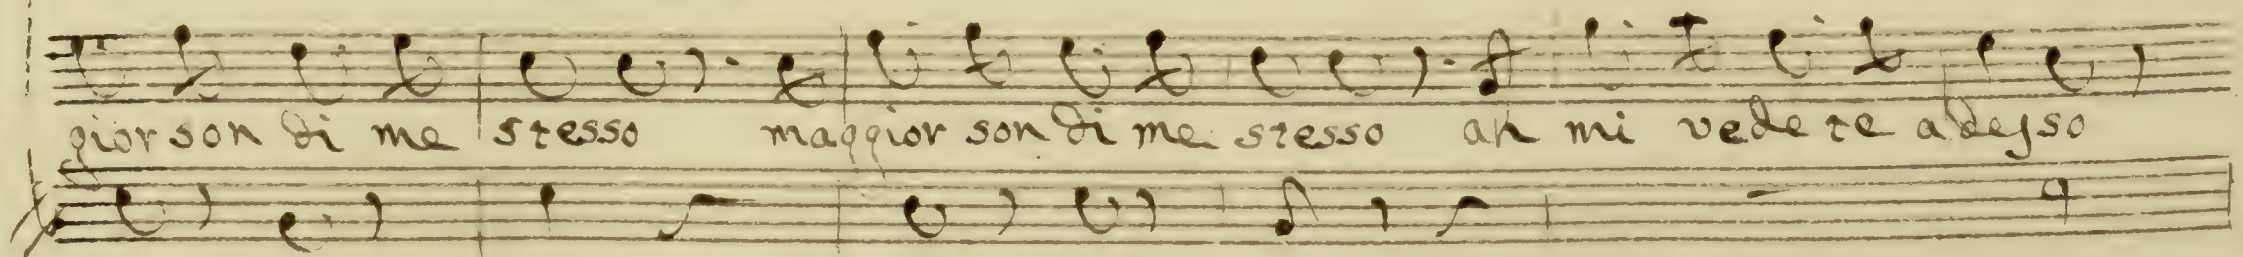 gior son di me stesso maggior son di me stesso ah mi vedete adesso